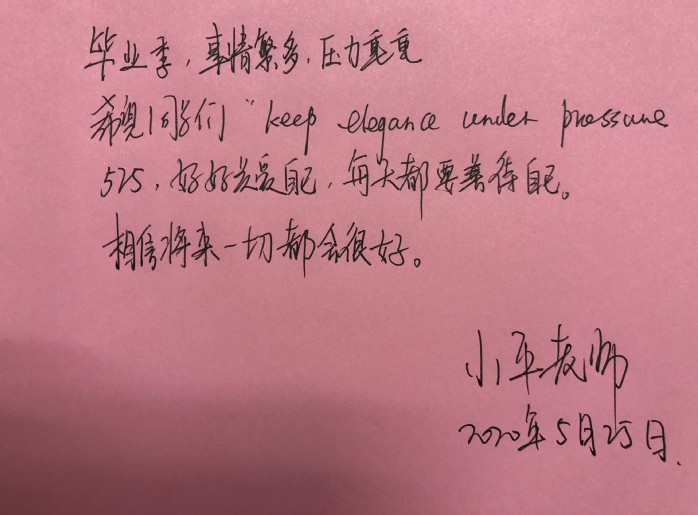 毕业季，事情繁多，压力重重
希望同学们“keep elegance under pressure
525，好好关爱自己，每天都要善待自己。
相信将来一切都会很好。
小平老师
2020年5月25日.